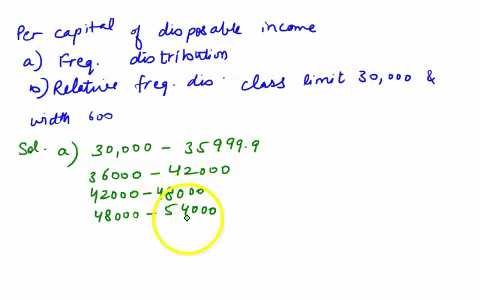 Per capital of disposable income
a) Freq. distribution
b) Relative freq. dis. class limit 30,000 &
width 600
Sol. a) 30,000 - 35999.9
36000 - 42000
42000 - 48000
48000 - 54000